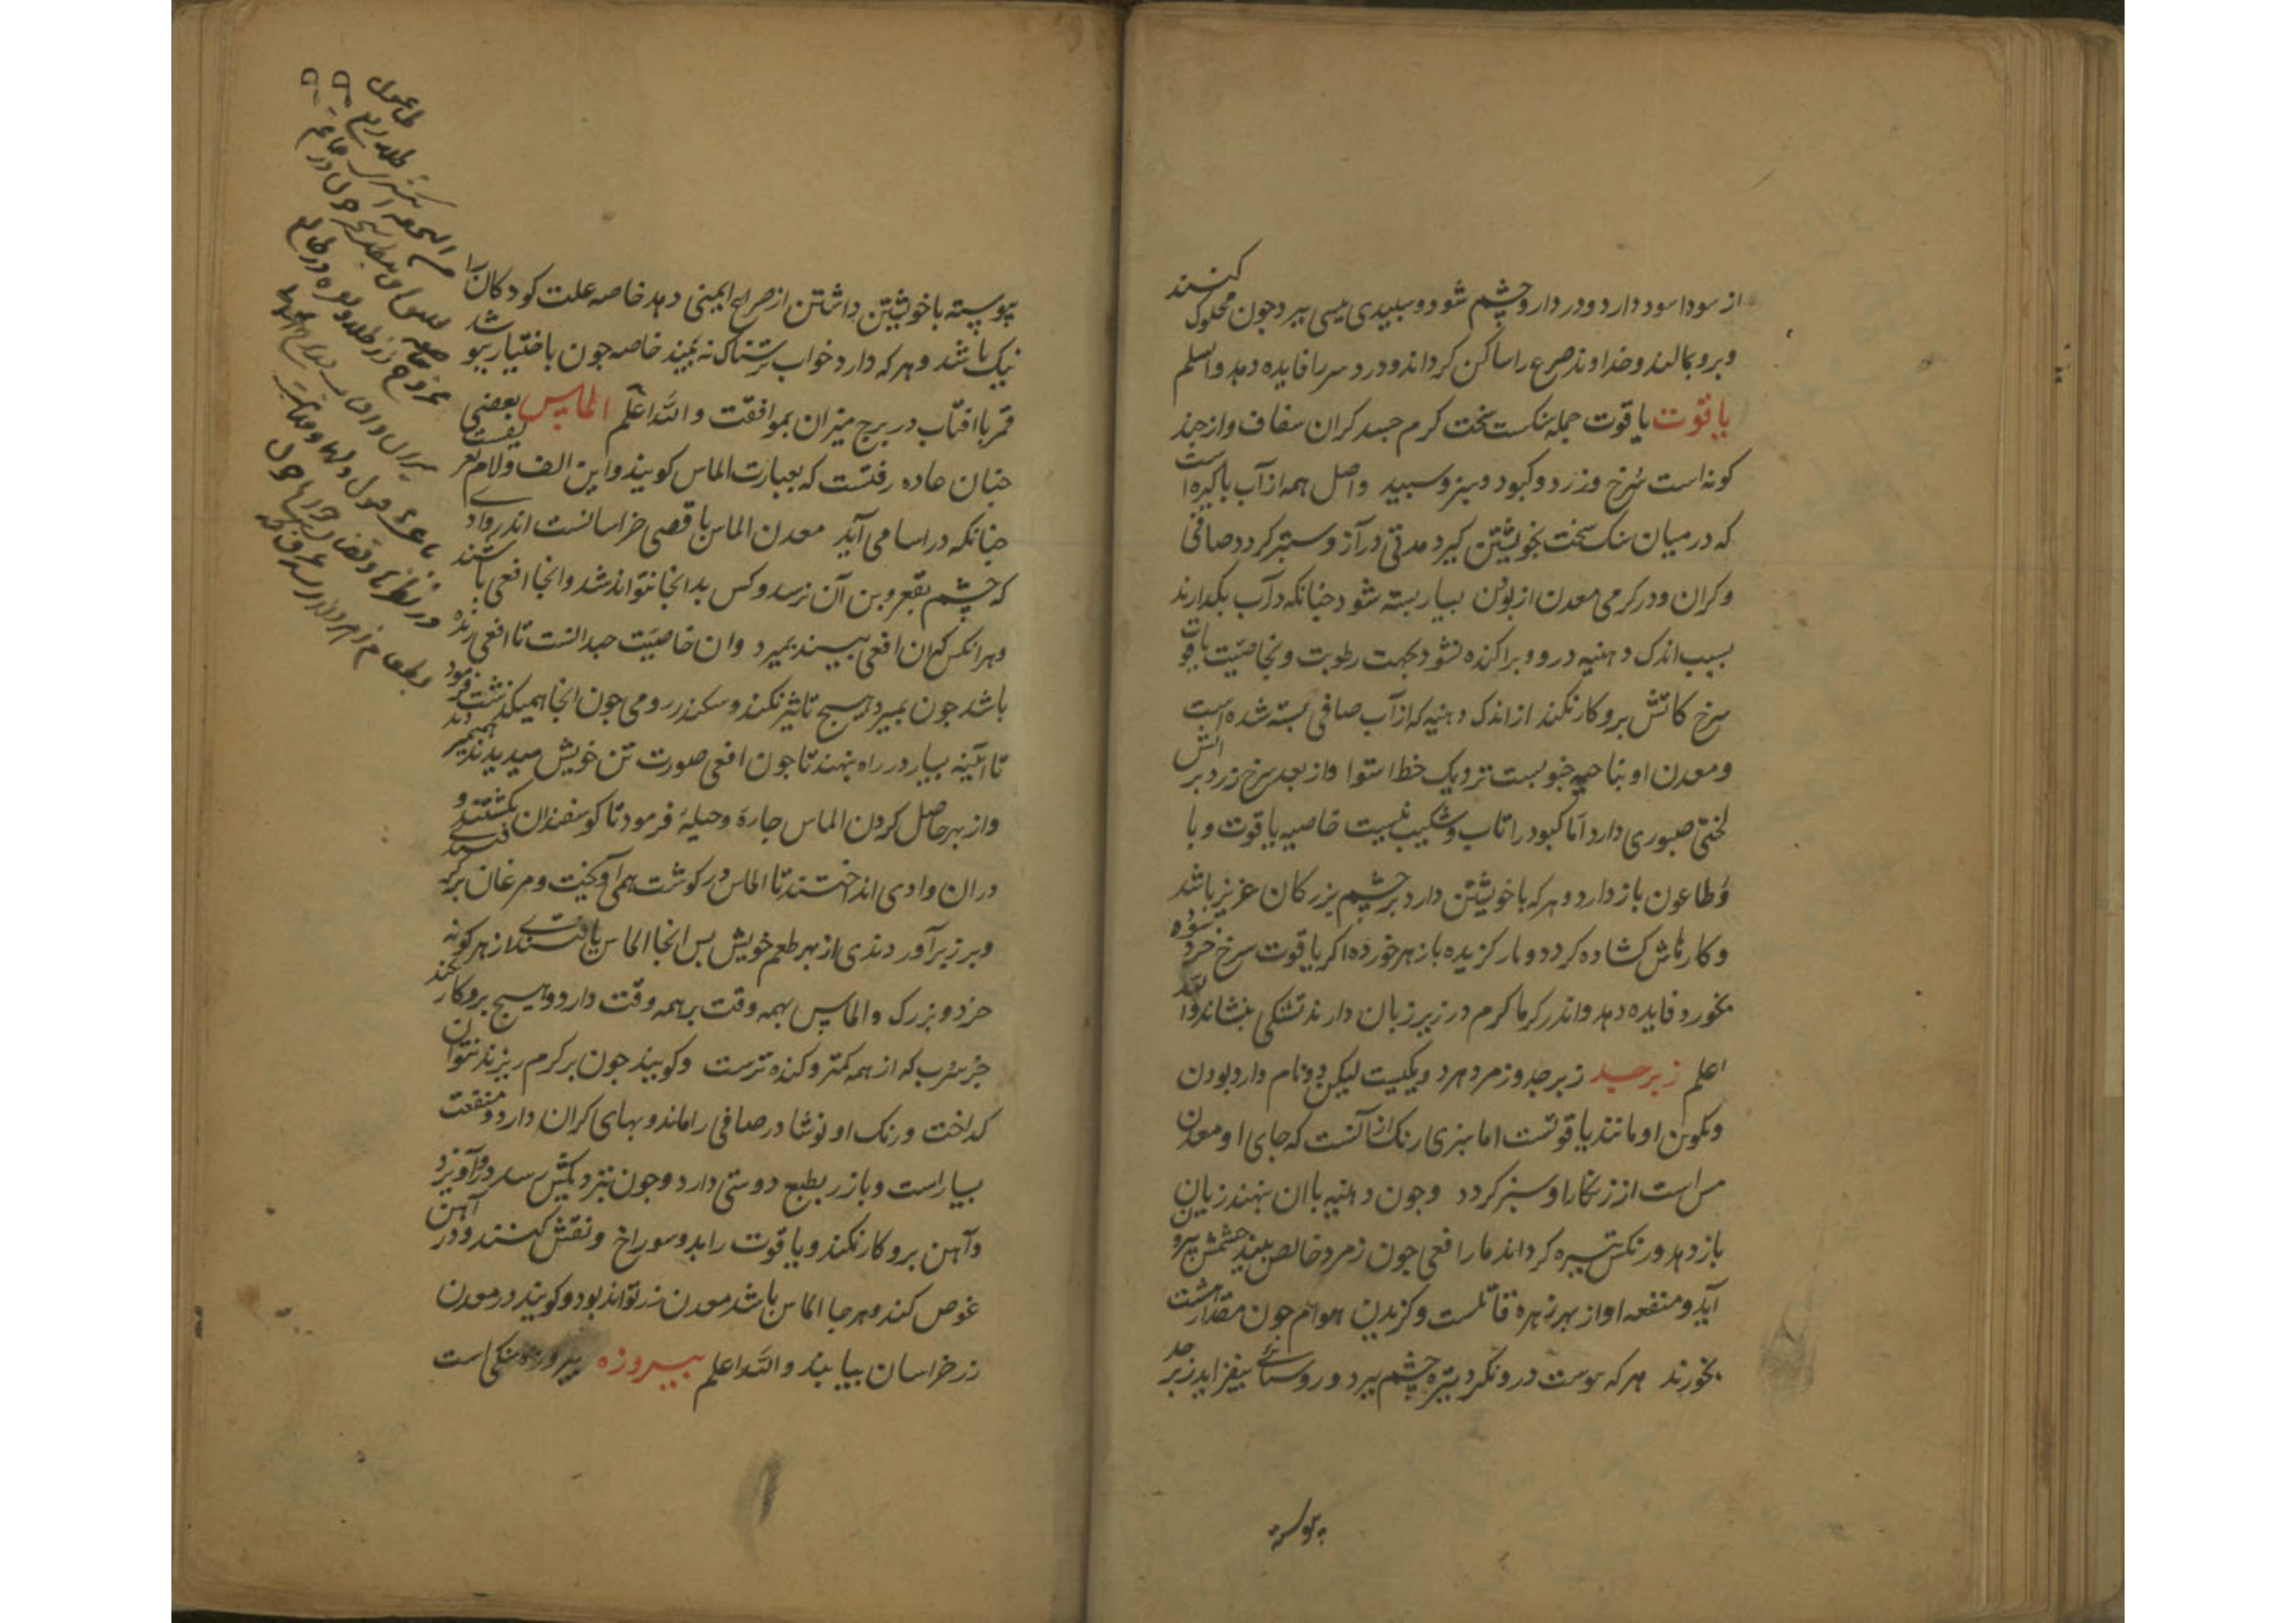 از سودا سود دارد و در داروچشم شود و سبیدی بیسی ببرد جون محلوک کنند
و برو بمالند و خداوند صرع را ساکن کرداند و درد سر را فایده دهد واسلم
یاقوت یاقوت جمله سنکست سخت کرم جسد کران سفاف و از جند
کونه است سُرخ و زرد و کبود و سبز و سبید واصل همه از آب باکیزه است
که در میان سنک سخت بخویشتن کیرد مدتی دراز و ستبر کردد صافی
و کران و در کرمی معدن از بودن بسیار بسته شود جنانکه در آب بکدارند
بسبب اندک دهنیه درو و براکنده نشود بجهت رطوبت و بخاصیّت یاقوت
سرخ کاتش برو کار نکند از اندک دهنیه که از آب صافی بسته شده است
و معدن او بناحیه جنوبست نزدیک خط استوا و از بعد سرخ زرد بر اتش
لختی صبوری دارد اما کبود را تاب و شکیب نیست خاصیه یاقوت وبا
و طاعون باز دارد و هر که با خویشتن دارد بر چشم بزرکان عزیز باشد
و کارهاش کشاده کردد و مار کزیده با زهر خورده اکر یاقوت سرخ خرد سوده
بخورد فایده دهد و اندر کرما کرم در زیر زبان دارند تشنکی بنشاند والله
اعلم زبرجد زبرجد و زمرد هر دو یکیست لیکن دو نام دارد بودن
و تکوین او مانند یاقوتست اما سبزی رنک از آنست که جای او معدن
مس است از زنکار او سبز کردد و جون دهنیه با ان نهند زیان
باز دهد و رنکش تیره کرداند مار افعی جون زمرد خالص بیند چشمش بیرون
آید و منفعه او از بهر زهره قاتلست و کزیدن هوام جون مقدار هشت جو
بخورند هر که بیوست درو نکرد تیره چشم ببرد و روسنائی بیفزاید زبرجد
پیوسته
پیوسته با خویشتن داشتن از صرع ایمنی دهد خاصه علت کودکان را
نیک باشد و هر که دارد خواب ترسناک نه بیند خاصه جون باختیار بپوشد
قمر با افتاب در برج میزان بموافقت و الله اعلم الماس بعضی
جنان عاده رفتست که بعبارت الماس کویند و این الف و لام تعریفست
جنانکه در اسامی آید معدن الماس باقصی خراسانست اندر وادی
که چشم بقعر و بن آن نرسد و کس بدانجا نتواند شد و انجا افعی باشند
و هر انکس که ان افعی ببیند بمیرد و ان خاصیّت جندانست تا افعی زنده
باشد جون بمیرد هیچ تاثیر نکند و سکندر رومی جون انجا همیکذشت فرمود
تا آئینه بسیار در راه بنهند تا جون افعی صورت تن خویش میدیدند همیمردند
و از بهر حاصل کردن الماس جاره و حیلهٔ فرمود تا کوسفندان بکشتند و
دران وادی انداختند تا الماس در کوشت همی آویخت و مرغان بر
و بر زبر آوردندی از بهر طعم خویش بس انجا الماس یافتندی از هر کونه
خرد و بزرک و الماس بهمه وقت بر همه وقت دارد و هیچ برو کار نکند
جز سُرب که از همه کمتر و کنده ترست و کویند جون بر کرم ریزند نتوان
کداخت و رنک او نوشادر صافی را ماند و بهای کران دارد و منفعت
بسیار است و با زر بطبع دوستی دارد و جون بنزدیکش رسد درو آویزد
و آهن برو کار نکند و یاقوت را بدو سوراخ و نقش کنند و در آهن
غوص کند و هر جا الماس باشد معدن زر تواند بود و کویند در معدن
زر خراسان بیابند و الله اعلم پیروزه پیروزه سنکی است